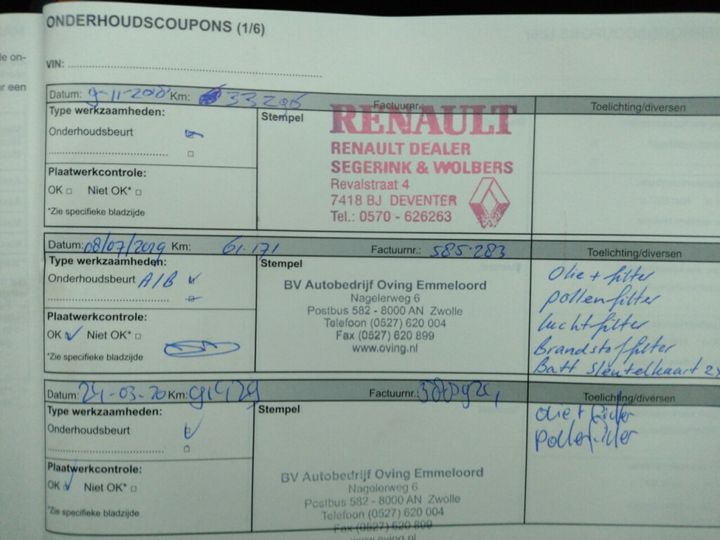 ONDERHOUDSCOUPONS (1/6)
VIN:
Datum: Km: 33206 Factuurnr.
Type werkzaamheden: Stempel Toelichting/diversen
Onderhoudsbeurt
RENAULT
RENAULT DEALER
SEGERINK & WOLBERS
Revalstraat 4
7418 BJ DEVENTER
Tel.: 0570 - 626263
Plaatwerkcontrole:
OK Niet OK*
*Zie specifieke bladzijde
Datum: 08/07/2019 Km: 61.171 Factuurnr.: 585.283 Toelichting/diversen
Type werkzaamheden: Stempel
Onderhoudsbeurt A/B
BV Autobedrijf Oving Emmeloord
Nagelerweg 6
Postbus 582 - 8000 AN Zwolle
Telefoon (0527) 620 004
Fax (0527) 620 899
www.oving.nl
Olie + filter
pollenfilter
luchtfilter
Brandstoffilter
Batt sleutelkaart 2x
Plaatwerkcontrole:
OK Niet OK*
*Zie specifieke bladzijde
Datum: 24-03-20 Km: Factuurnr.: Toelichting/diversen
Type werkzaamheden: Stempel
Onderhoudsbeurt
olie + filter
pollenfilter
Plaatwerkcontrole:
OK Niet OK*
*Zie specifieke bladzijde
BV Autobedrijf Oving Emmeloord
Nagelerweg 6
Postbus 582 - 8000 AN Zwolle
Telefoon (0527) 620 004
Fax (0527) 620 899
www.oving.nl